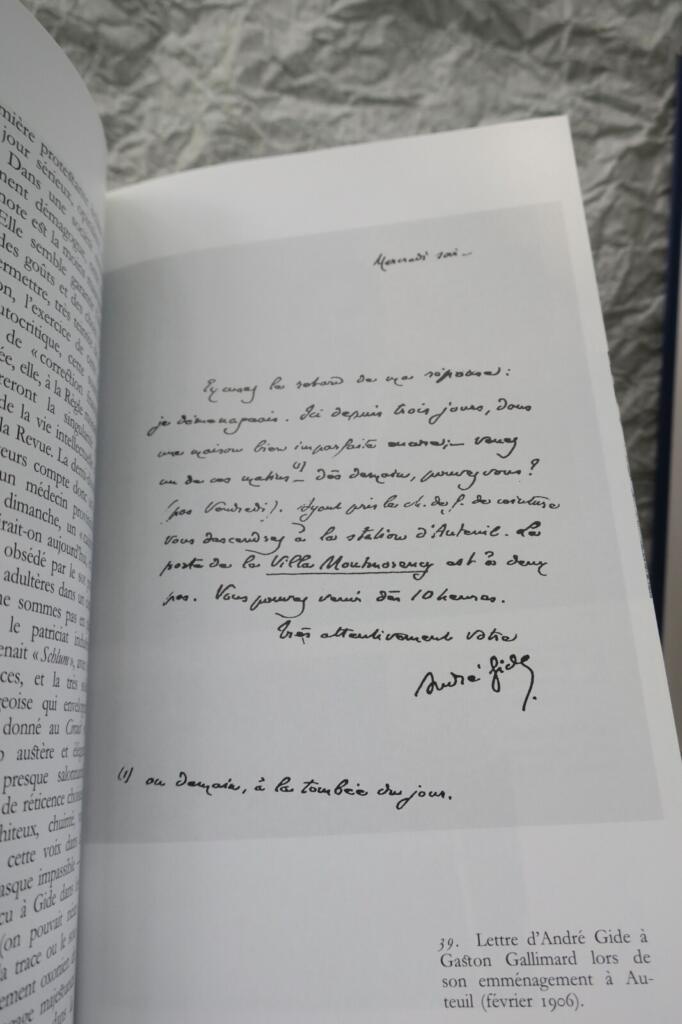 mière protestante
jour sérieux,
Dans une
ment démagogue,
note est la moins
Elle semble
des goûts et des
ermettre, très
on, l'exercice de
utocritique, cette
de « correction
ée, elle, à la Règle
reront la
de la vie intellec
la Revue. La
eurs compte donc
un médecin
dimanche, un
rait-on aujourd'hui,
obsédé par le
adultères dans un
ne sommes pas en
le patriciat
enait « Schlum »,
ces, et la très
geoise qui
donné au
austère et
presque
de réticence
hiteux, chuinté,
cette voix dans
asque impassible
çu à Gide dans
(on pouvait
a trace ou le
ement oxonien
age
dans
Mercredi soir —
Excusez le retard de ma réponse :
je déménageais. Ici depuis trois jours, dans
une maison bien imparfaite encore ; — venez
un de ces matins (1) — dès demain, pouvez vous ?
(pas Vendredi). Ayant pris le ch. de f. de ceinture
vous descendrez à la station d'Auteuil. La
porte de la Villa Montmorency est à deux
pas. Vous pouvez venir dès 10 heures.
Très attentivement votre
André Gide.
(1) ou demain, à la tombée du jour.
39. Lettre d'André Gide à
Gaston Gallimard lors de
son emménagement à Au-
teuil (février 1906).